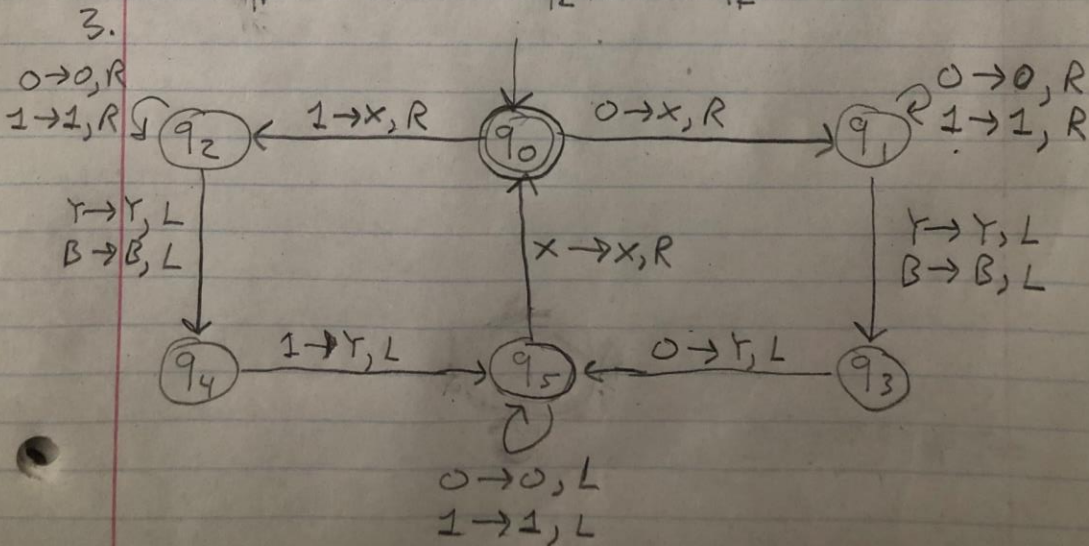 3.
0→0, R
1→1, R
q2
1→X, R
q0
0→X, R
q1
0→0, R
1→1, R
Y→Y, L
B→B, L
X→X, R
Y→Y, L
B→B, L
q4
1→Y, L
q5
0→Y, L
q3
0→0, L
1→1, L